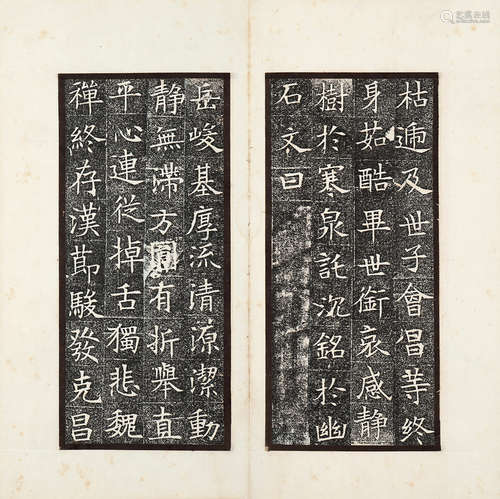 枯遞及世子會昌等終
身茹酷畢世銜哀感静
樹於寒泉託沉銘於幽
石文曰
岳峻基厚流清源潔動
静無滯方圓有折舉直
平心連從掉舌獨悲魏
禪終存漢節駿發克昌